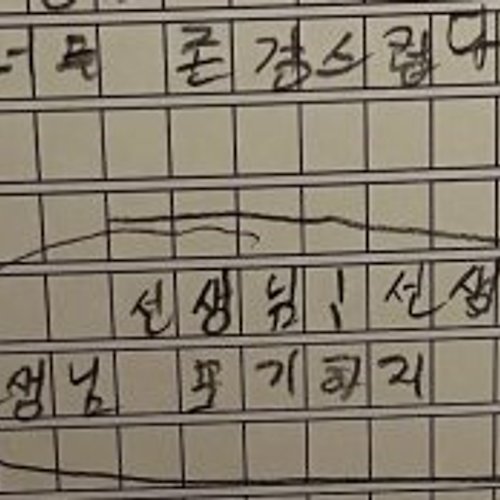 존경스럽다
선생님! 선생
생님 포기하지